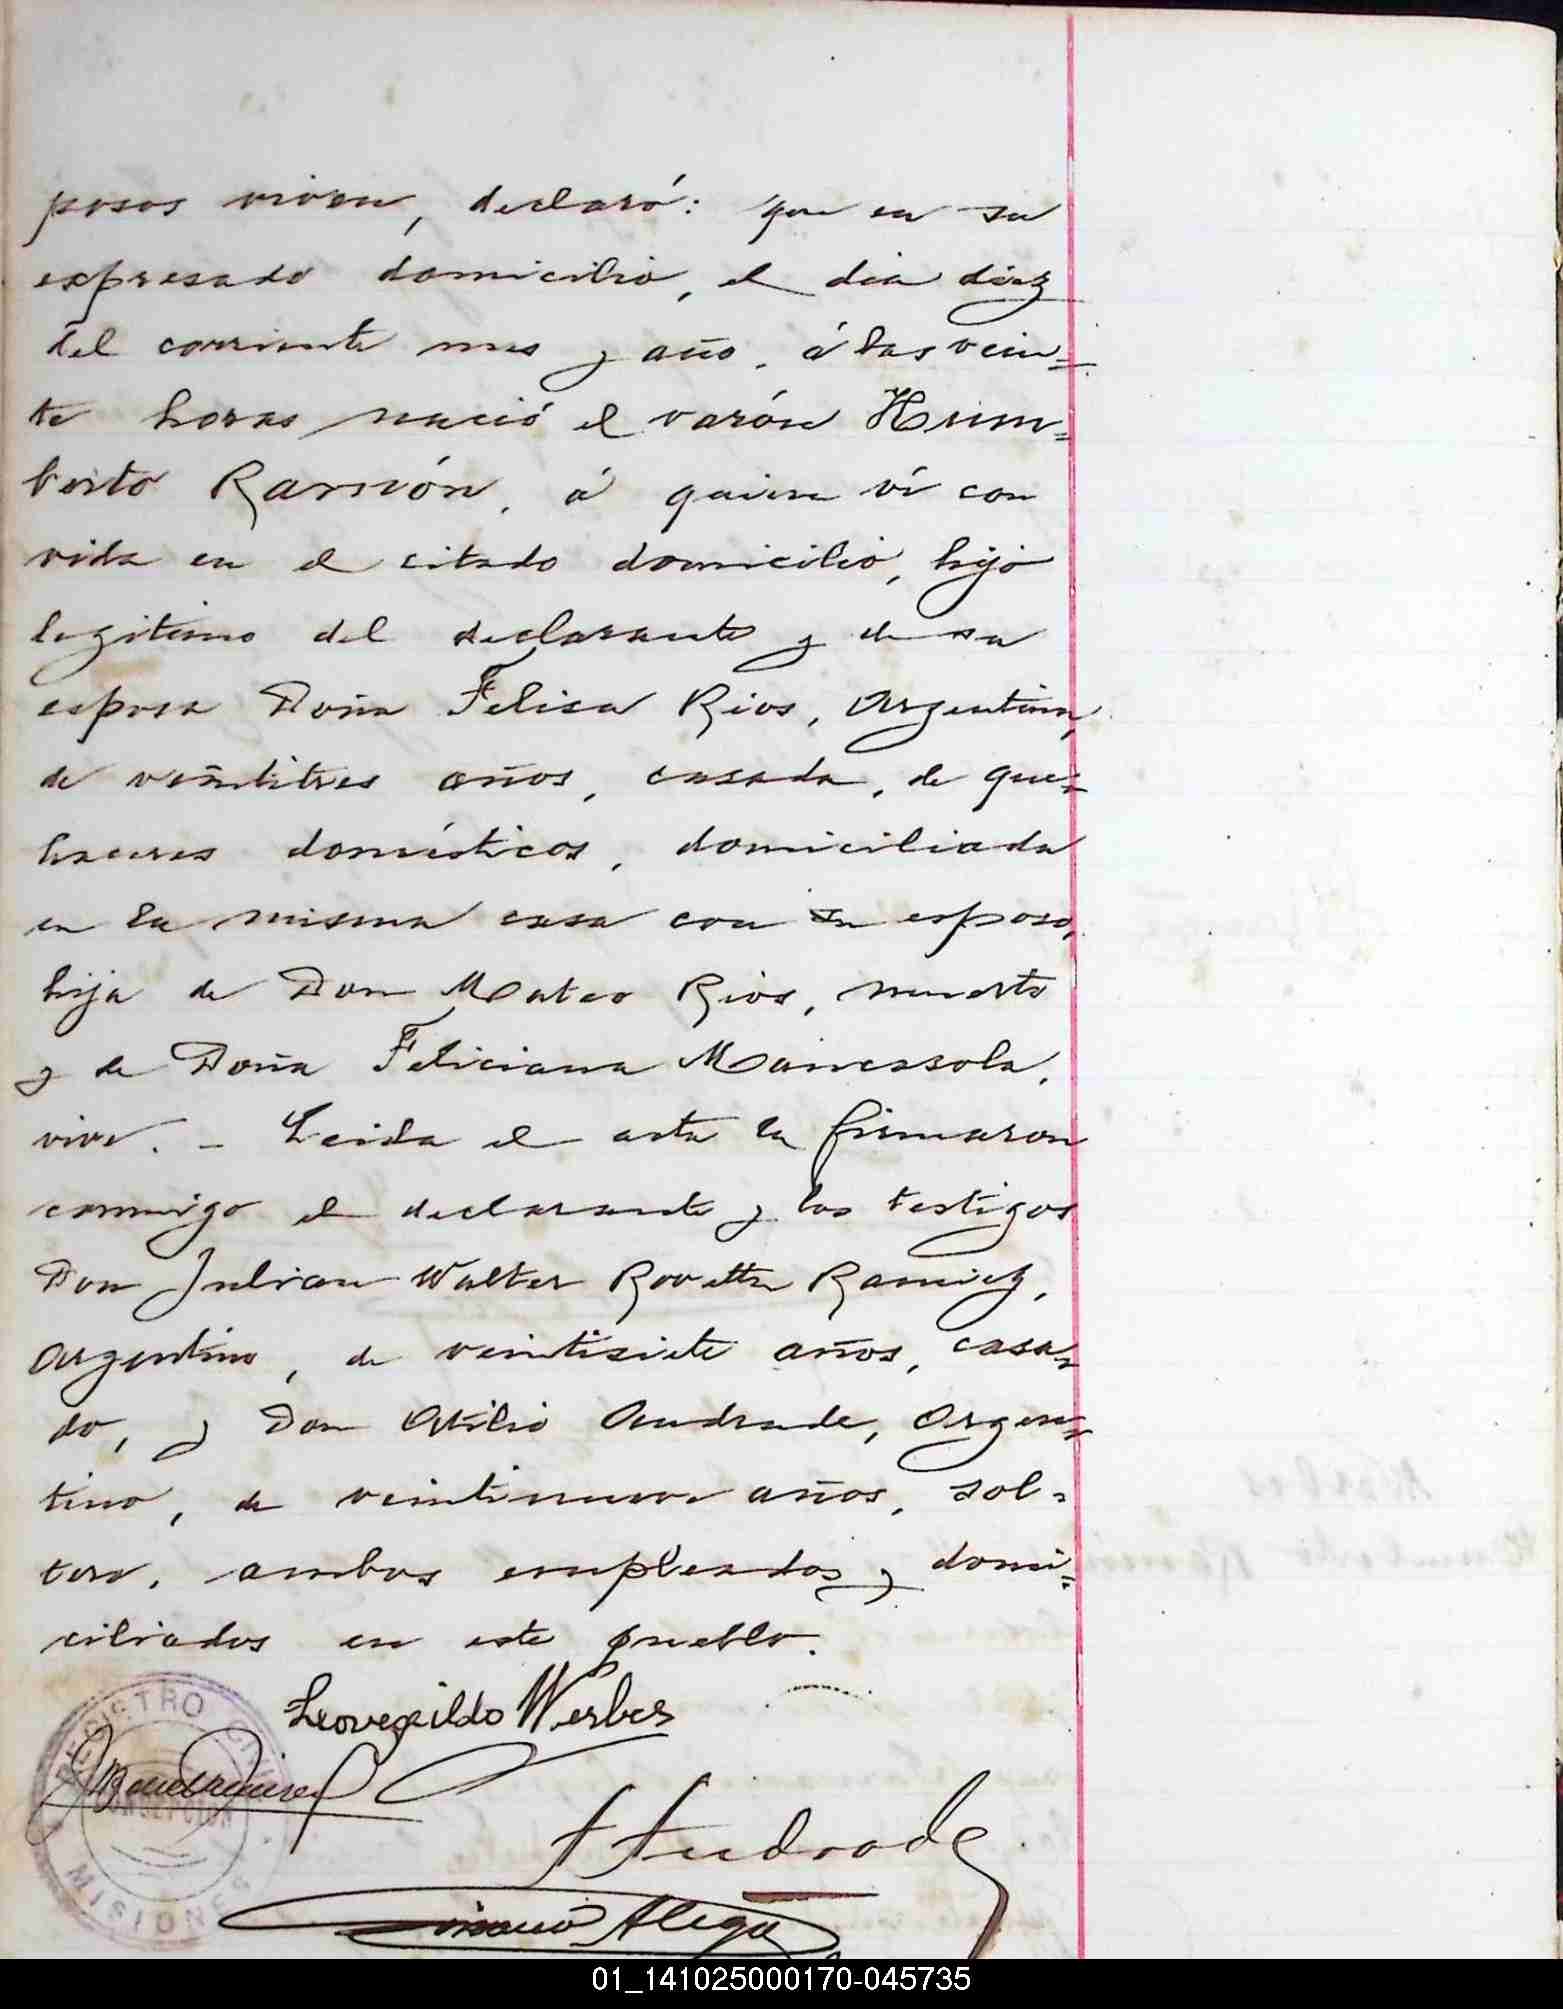 posos viven, declaró: que en su
expresado domicilio, el dia diez
del corriente mes y año, á las vein=
te horas nació el varón Hum=
berto Ramón, á quien ví con
vida en el citado domicilio, hijo
legitimo del declarante y de su
esposa Doña Felisa Rios, Argentina,
de veintitres años, casada, de que=
haceres domésticos, domiciliada
en la misma casa con su esposo,
hija de Don Mateo Rios, muerto
y de Doña Feliciana
vive. - Leida el acta la firmaron
conmigo el declarante y los testigos
Don Julian Walter Rovetta Ramirez,
Argentino, de veintisiete años, casa=
do, y Don Atilio Andrade, Argen=
tino, de veintinueve años, sol=
tero, ambos empleados y domi=
ciliados en este pueblo.
Leovegildo Werbes
REGISTRO CIVIL
CONCEPCION
MISIONES
A Andrade
Alegre
01_141025000170-045735